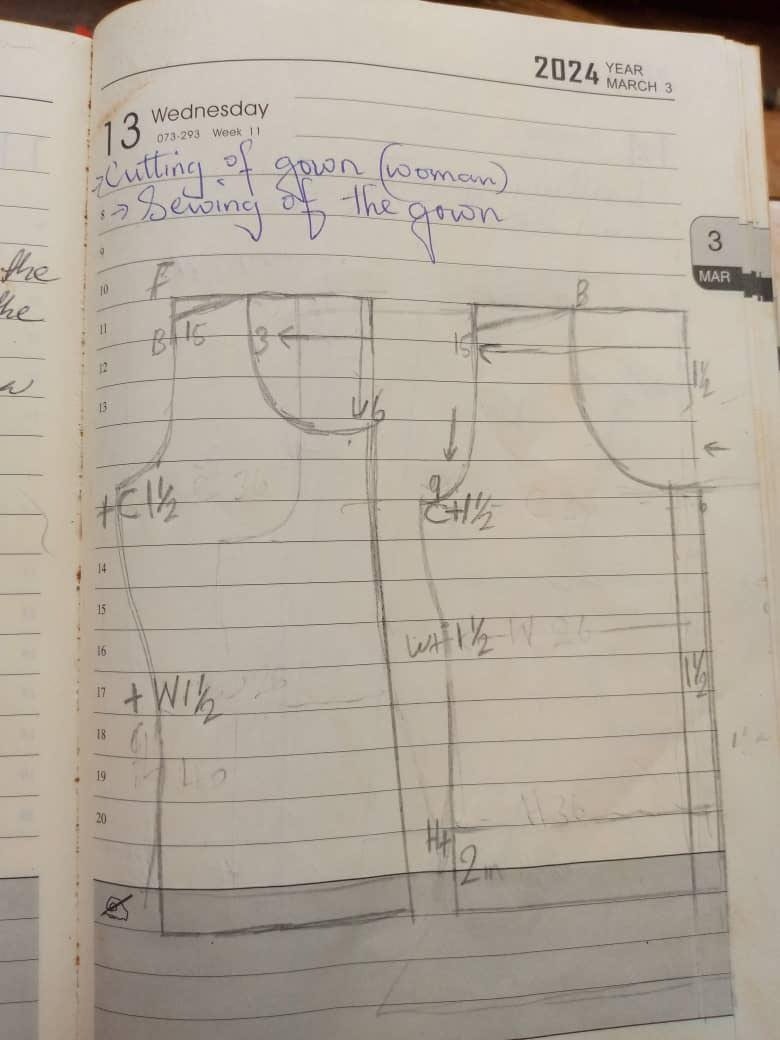 2024 YEAR
MARCH 3
13 Wednesday
073-293 Week 11
→Cutting of gown (woman)
8 → Sewing of the gown
the
he
9
3
MAR
10 F B
11 B 15 3 15
12 1½
13 6
9
+C 1½ C+1½
14
15
16 W+1½
17 +W1½ 1½
18
19
20 H36
H+
2in